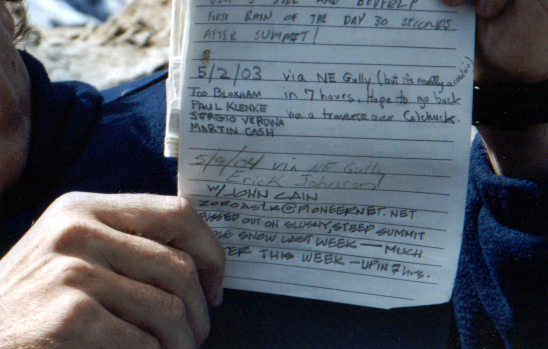 FIRST RAIN OF THE DAY 30 SECONDS
AFTER SUMMIT!
5/2/03 via NE Gully (but it's really a couloir)
TOD BLOXHAM in 7 hours. Hope to go back
PAUL KLENKE via a traverse over Colchuck.
SERGIO VERDINA
MARTIN CASH
5/9/04 VIA NE Gully
Erick Johnson
W/ JOHN CAIN
@PIONEERNET.NET
PISSED OUT ON SLUSHY, STEEP SUMMIT
SNOW LAST WEEK — MUCH
THIS WEEK — UP IN 7 hrs.